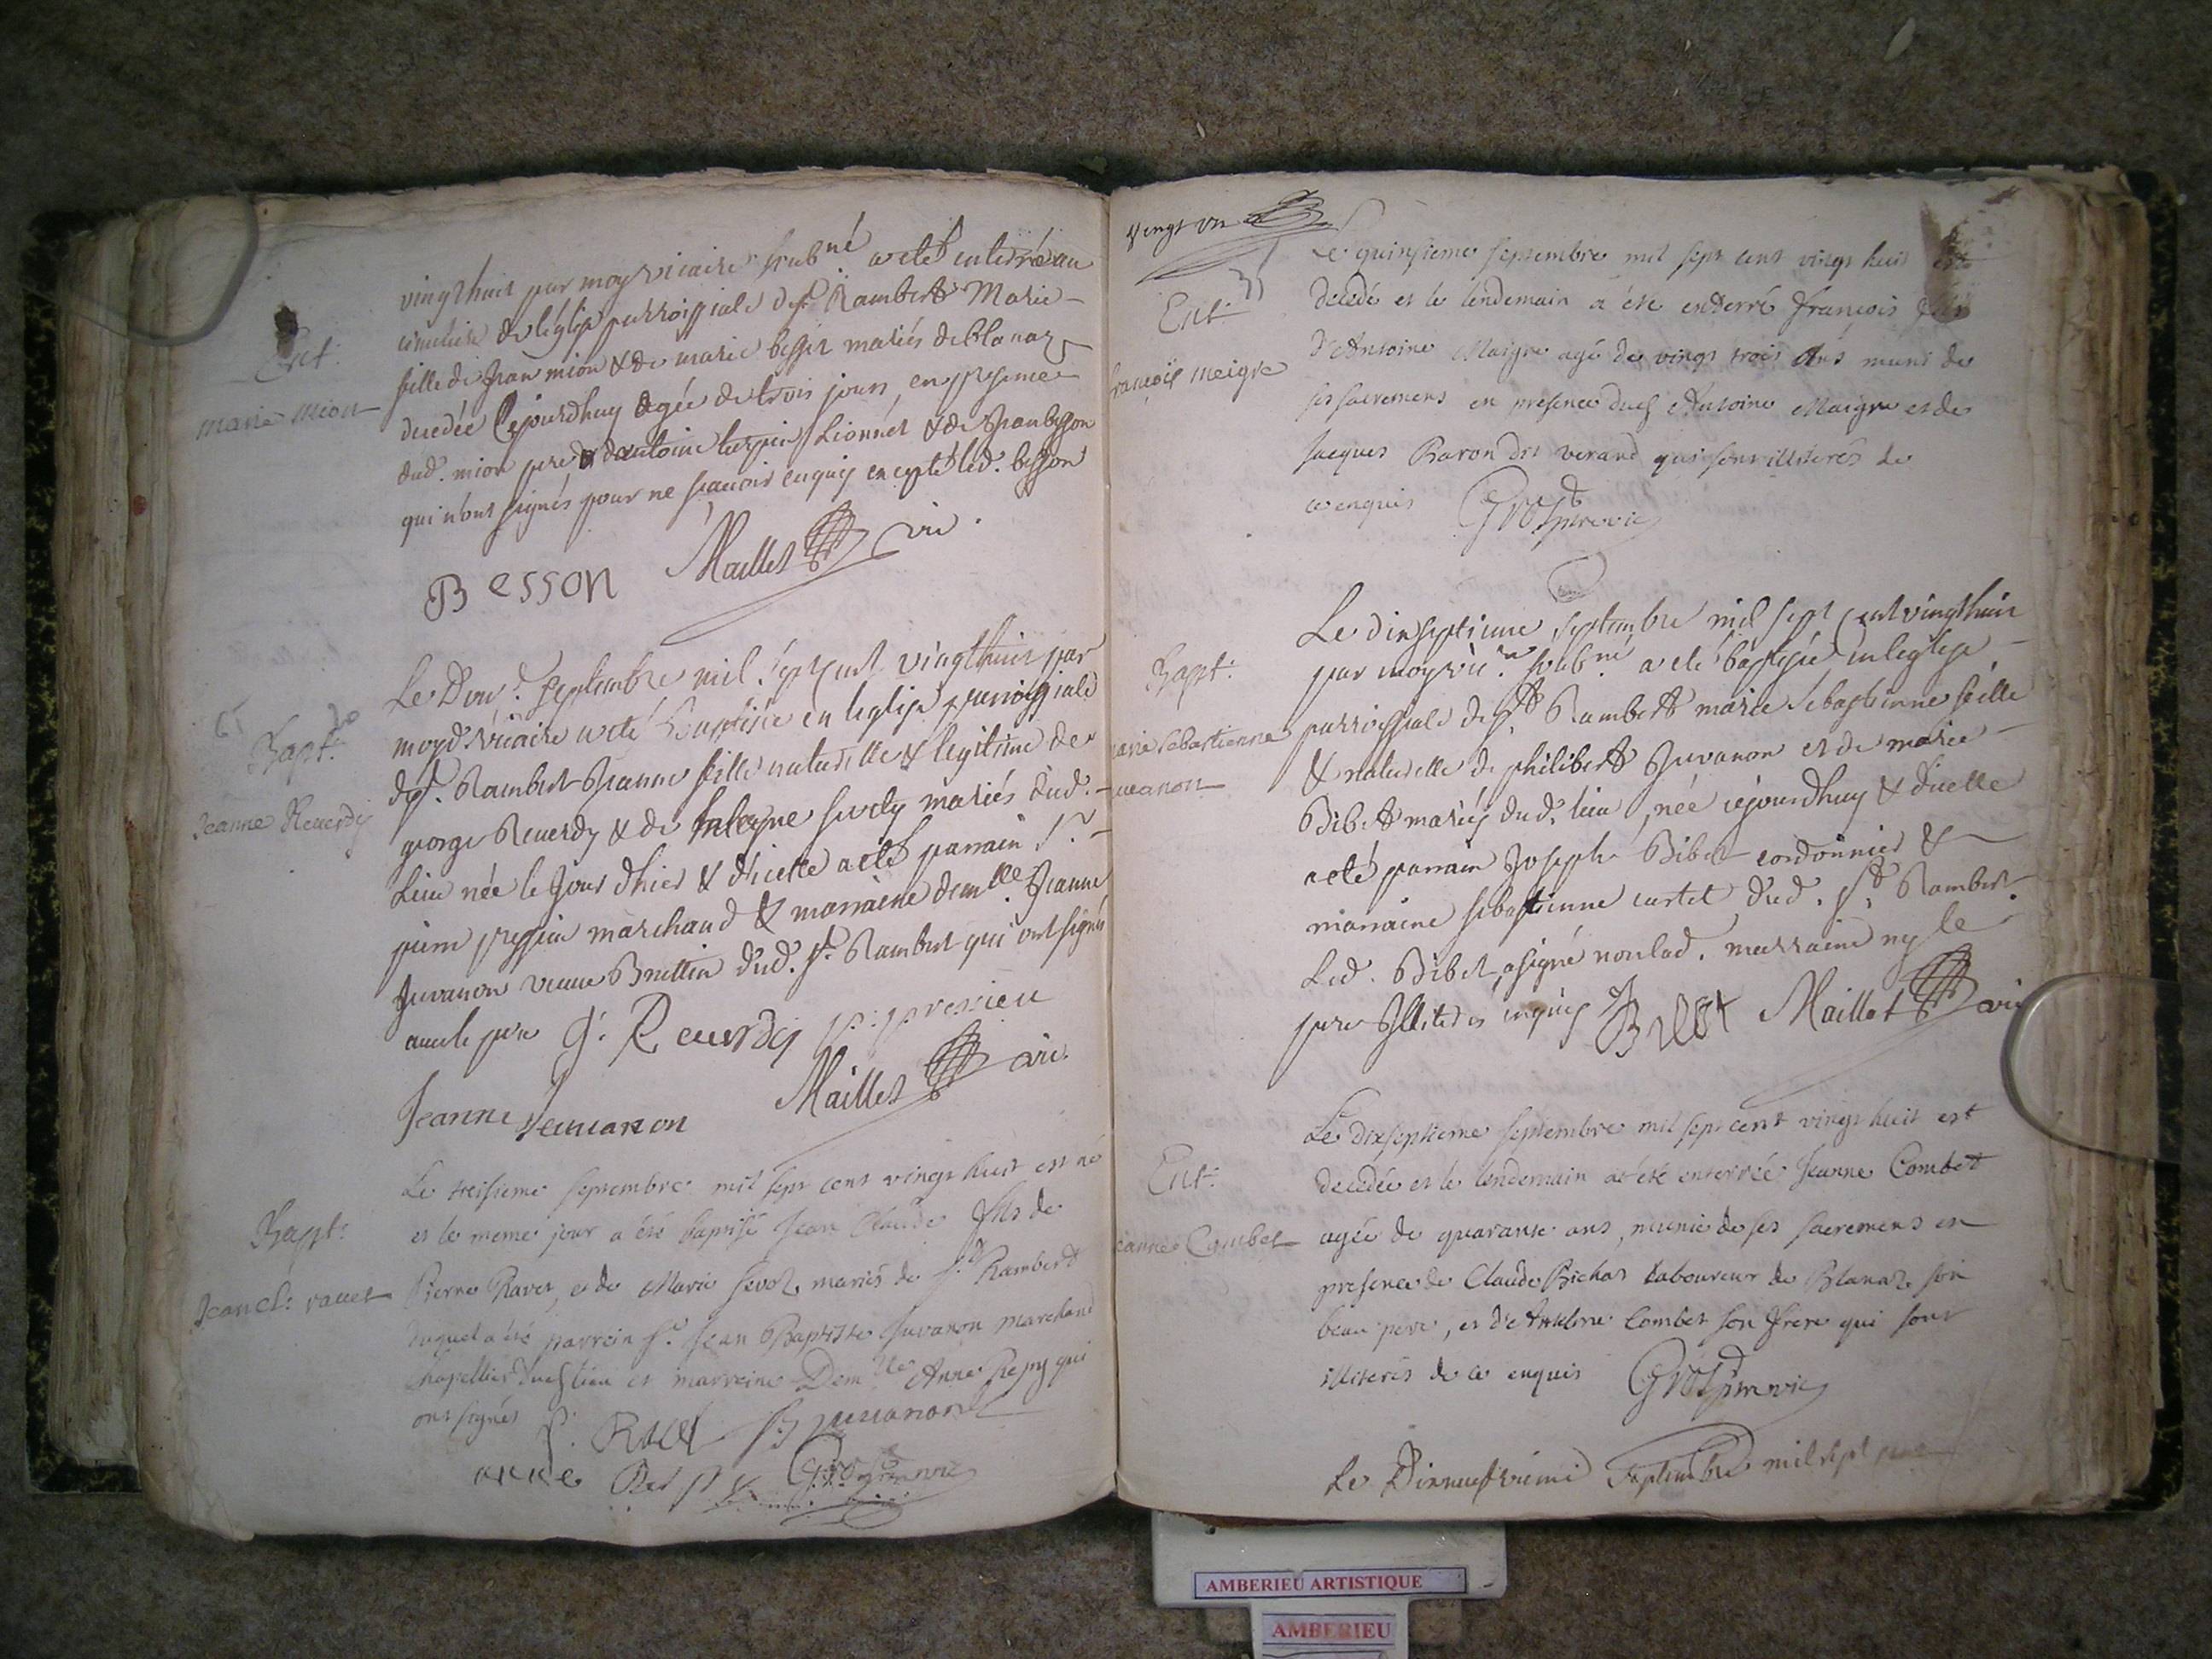 vingthuit par moy vicaire soubné a eté enterrée au
cimetiere de leglise parroissiale de st. Rambert Marie
Ent.
marie mion
fille de jean mion & de marie besson mariés de blanaz
decedée cejourdhuy agée de trois jours, en presence
dud. mion pere d'antoine Lionnet & de jean besson
qui n'ont signés pour ne sçavoir enquis excepté led. besson
Besson Maillet vic.
Le septembre mil sept cent vingthuit par
Bapt.
Jeanne Reuerdy
moyd. vicaire a eté baptisée en leglise parroissiale
de st. Rambert Jeanne fille naturelle & legitime de
george Reuerdy & de mariés dud.
Lieu née le jour d'hier & d'icelle a eté parrain sr.
pierre pressieu marchand & marraine demlle. Jeanne
Juvanon veuve Brettin dud. st. Rambert qui ont signés
avec le pere G. Reuerdy p. pressieu
Jeanne Jeuuanon Maillet vic.
Le treisieme septembre mil sept cent vingt huit est né
Bapt:
Jean Cl: rauet
et le meme jour a été baptisé Jean Claude fils de
Pierre Ravet, et de Marie mariés de st. Rambert
duquel a été parrein sr. Jean Baptiste Juvanon marchand
chapellier dud lieu et marreine Demlle Anne Repy qui
ont signés P. Ravet JB Juuanon
anne Repy Gros vic
vingt un
Le quinsieme septembre mil sept cent vingt huit est
Ent.
françois meigre
decedé et le lendemain a été enterré françois fils
d'Antoine Maigre agé de vingt trois ans muni de
ses sacremens en presence dud Antoine Maigre et de
Jacques Baron dit verand qui sont illiterés de
ce enquis Gros vic
Le dixseptieme septembre mil sept cent vingthuit
Bapt:
marie sebastienne
juuanon
par moy vicre. soubné a eté baptisée en leglise
parroissiale de st Rambert marie sebastienne fille
& naturelle de philibert Juvanon et de marie
Bibet mariés dud. lieu, née cejourdhuy & d'icelle
a eté parrain Joseph Bibet cordonnier &
marraine sebastienne cartet dud. st. Rambert.
Led. Bibet a signé non lad. marraine ny le
pere Illiterés enquis J Bibet Maillet vic
Le dixseptieme septembre mil sept cent vingt huit est
Ent.
jeanne Combet
decedée et le lendemain a été enterrée Jeanne Combet
agée de quarante ans, munie de ses sacremens en
presence de Claude Bichat Laboureur de Blanaz son
beau pere, et d'Antelme Combet son frere qui sont
illiterés de ce enquis Gros vic
Le Dixneufvieme septembre mil sept cent
AMBERIEU ARTISTIQUE
AMBERIEU